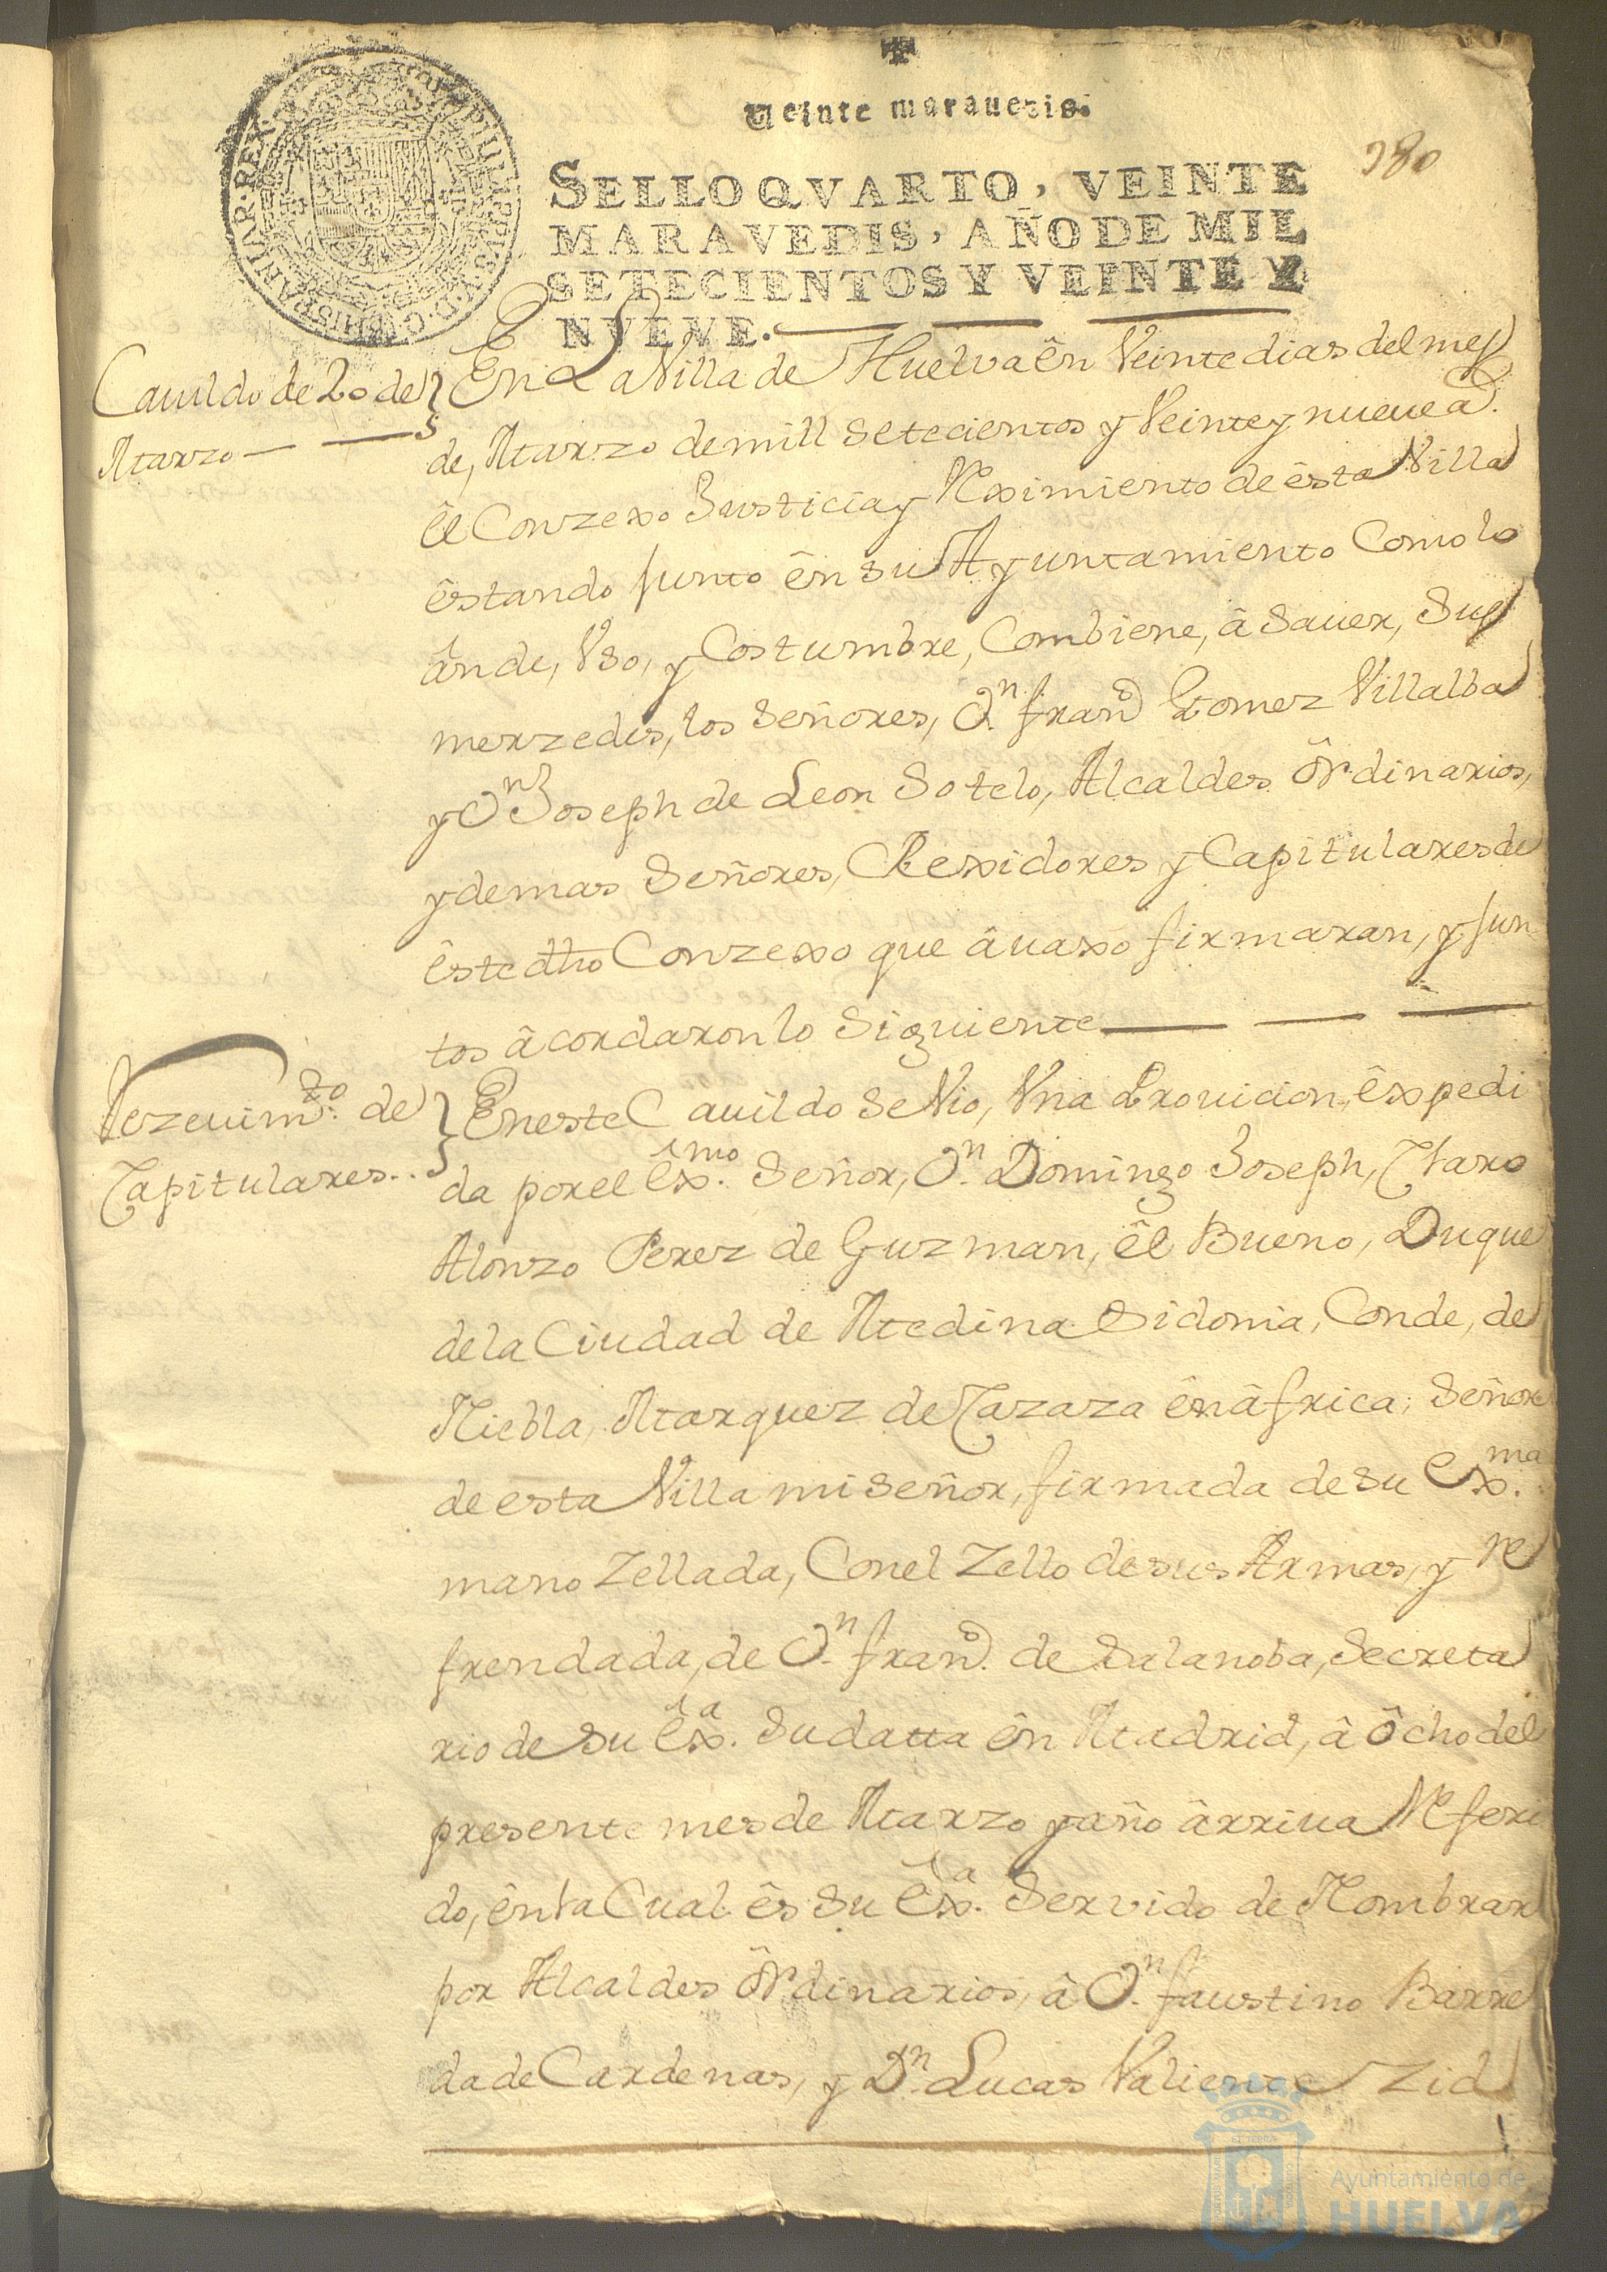 Veinte marauedis.
380
SELLO QVARTO, VEINTE
MARAVEDIS, AÑO DE MIL
SETECIENTOS Y VEINTE Y
NVEVE.
HISPANIAR. REX.
Cauildo de 20 de
Marzo
En La Villa de Huelva ên Veinte dias del mes
de, Marzo de mill setecientos y Veinte y nueue a.
êl Conzexo Justicia y Reximiento de êsta Villa
êstando junto ên su Ayuntamiento Como lo
ân de, Vso, y Costumbre, Combiene, â Sauer, Sus
merzedes, los Señores, Dn. franco Gomez Villalba
y Dn Joseph de Leon Sotelo, Alcaldes Ôrdinarios,
y demas Señores, Rexidores y Capitulares de
êste dho Conzexo que âuaxo firmaran, y jun
tos âcordaron lo Siguiente
Rezeuimto. de
Capitulares..
En este Cauildo Se Vio, Vna Prouicion, êxpedi
da por el êxmo. Señor, Dn. Domingo Joseph, Claro
Alonzo Perez de Guzman, êl Bueno, Duque
de la Ciudad de Medina Sidonia, Conde, de
Niebla, Marquez de Cazaza ên âfrica; Señor
de esta Villa mi Señor, firmada de su Exma.
mano Zellada, Con el Zello de sus Armas, y re
frendada, de Dn. franco. de Salanoba, Secreta
rio de su êxa. Su datta ên Madrid, â ôcho del
presente mes de Marzo y año ârriua Referi
do, ên la Cual ês Su êxa. Servido de Nombrar
por Alcaldes Ôrdinarios, â Dn. faustino Barre
da de Cardenas, y Dn. Lucas Valiente Zid
Ayuntamiento de
HUELVA